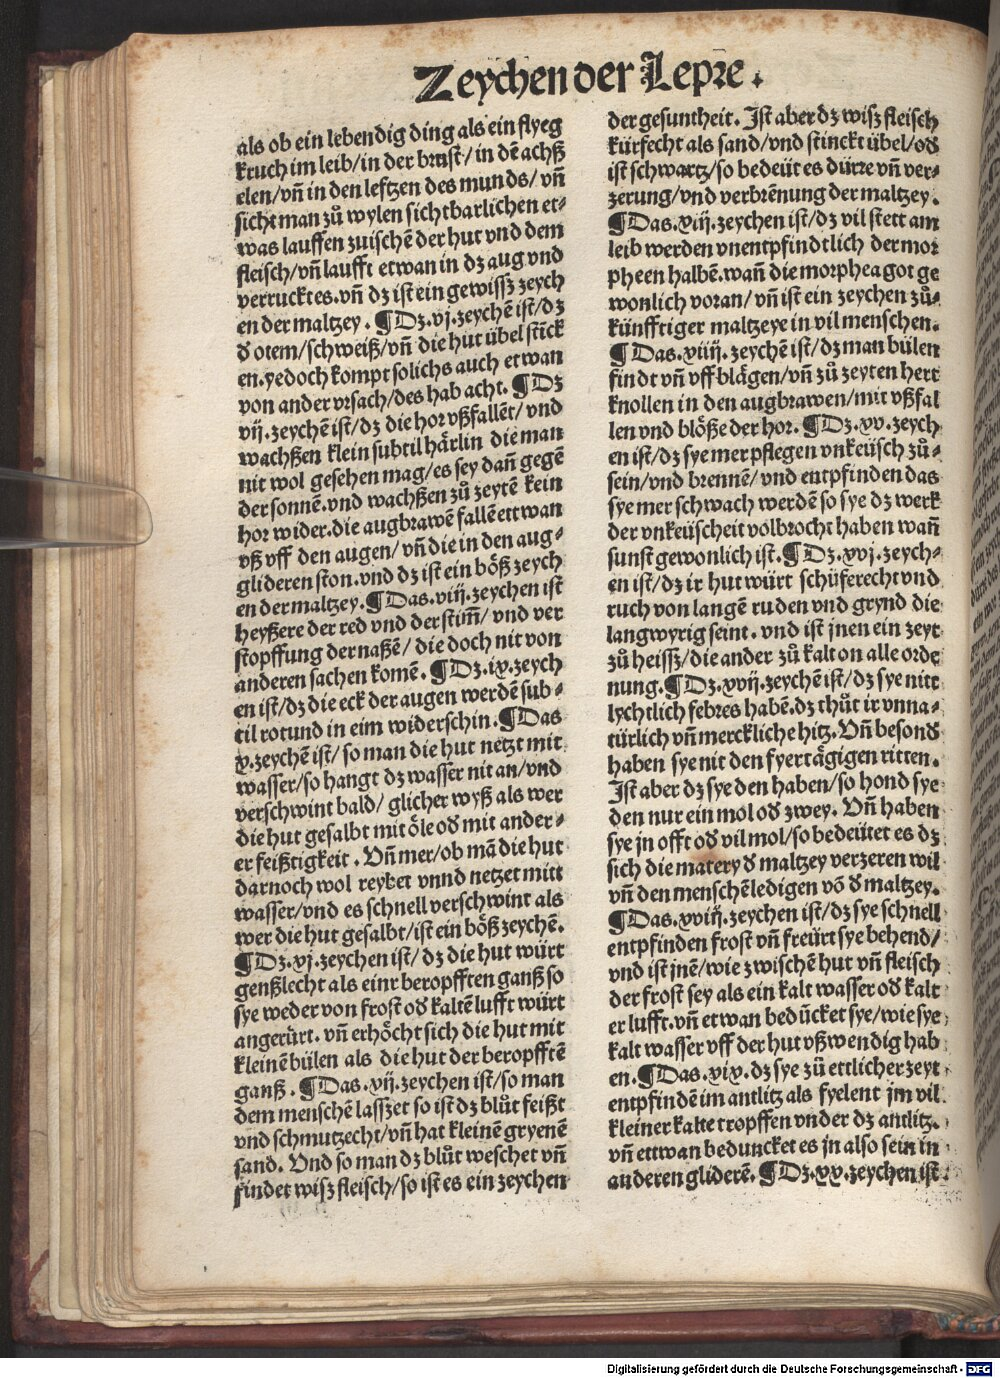 Zeychen der Lepre.
als ob ein lebendig ding als ein flyeg
kruch im leib/in der brust/in dē achß
elen/vñ in den lefftzen des munds/vñ
sicht man zů wylen sichtbarlichen et⸗
was lauffen zuischē der hut vnd dem
fleisch/vñ laufft etwan in dz aug vnd
verruckt es.vñ dz ist ein gewissz zeych
en der maltzey. ¶Dz.vj.zeychē ist/dz
d̕ otem/schweiß/vñ die hut übel stīck
en.yedoch kompt solichs auch etwan
von ander vrsach/des hab acht. ¶Dz
vij.zeychē ist/dz die hor vßfallēt/vnd
wachßen klein subtil härlin die man
nit wol gesehen mag/es sey dañ gegē
der sonnē.vnd wachßen zů zeytē kein
hor wider.die augbrawē fallē ettwan
vß vff den augen/vñ die in den aug⸗
glideren ston.vnd dz ist ein bößz zeych
en der maltzey.¶Das.viij.zeychen ist
heyßere der red vnd der stim̄/vnd ver
stopffung der naßē/die doch nit von
anderen sachen komē. ¶Dz.ix.zeych
en ist/dz die eck der augen werdē sub⸗
til rotund in eim widerschin.¶Das
x.zeychē ist/so man die hut netzt mit
wasser/so hangt dz wasser nit an/vnd
verschwint bald/glicher wyß als wer
die hut gesalbt mit öle od̕ mit ander⸗
er feißtigkeit. Vñ mer/ob mā die hut
darnoch wol reybet vnnd netzet mitt
wasser/vnd es schnell verschwint als
wer die hut gesalbt/ist ein bößz zeychē.
¶Dz.xj.zeychen ist/dz die hut würt
genßlecht als einr beropfften ganß so
sye weder von frost od̕ kaltē lufft würt
angerürt.vñ erhöcht sich die hut mit
kleinē bülen als die hut der beropfftē
ganß. ¶Das.xij.zeychen ist/so man
dem menschē lasszet so ist dz blůt feißt
vnd schmutzecht/vñ hat kleinē gryenē
sand. Vnd so man dz blůt weschet vñ
findet wisz fleisch/so ist es ein zeychen
der gesuntheit. Ist aber dz wisz fleisch
kürfecht als sand/vnd stinckt übel/od̕
ist schwartz/so bedeüt es dürre vñ ver⸗
zerung/vnd verbrēnung der maltzey.
¶Das.xiij.zeychen ist/dz vil stett am
leib werden vnentpfindtlich der mor
pheen halbē.wañ die morphea got ge
wonlich voran/vñ ist ein zeychen zů⸗
künfftiger maltzeye in vil menschen.
¶Das.xiiij.zeychē ist/dz man bülen
findt vñ vff blägen/vñ zů zeyten hert
knollen in den augbrawen/mit vßfal
len vnd blößze der hor.¶Dz.xv.zeych
en ist/dz sye mer pflegen vnkeüsch zů⸗
sein/vnd brennē/vnd entpfinden das
sye mer schwach werdē so sye dz werk
der vnkeüscheit volbrocht haben wañ
sunst gewonlich ist.¶Dz.xvj.zeych⸗
en ist/dz ir hut würt schüferecht vnd
ruch von langē ruden vnd grynd die
langwyrig seint.vnd ist jnen ein zeyt
zů heissz/die ander zů kalt on alle orde
nung.¶Dz.xvij.zeychē ist/dz sye nitt
lychtlich febres habē.dz thůt ir vnna⸗
türlich vñ merckliche hitz.Vñ besond̕
haben sye nit den fyertägigen ritten.
Ist aber dz sye den haben/so hond sye
den nur ein mol od̕ zwey. Vñ haben
sye jn offt od̕ vil mol/so bedeütet es dz
sich die matery d̕ maltzey verzeren wil
vñ den menschē ledigen vō d̕ maltzey.
¶Das.xviij.zeychen ist/dz sye schnell
entpfinden frost vñ freürt sye behend/
vnd ist jnē/wie zwischē hut vñ fleisch
der frost sey als ein kalt wasser od̕ kalt
er lufft.vñ etwan bedücket sye/wie sye
kalt wasser vff der hut vßwendig hab
en.¶Das.xix.dz sye zü ettlicher zeyt
entpfindē im antlitz als fyelent jm vil
kleiner kalte tropffen vnder dz antlitz.
vñ ettwan beduncket es jn also sein in
anderen gliderē. ¶Dz.xx.zeychen ist
Digitalisierung gefördert durch die Deutsche Forschungsgemeinschaft - DFG